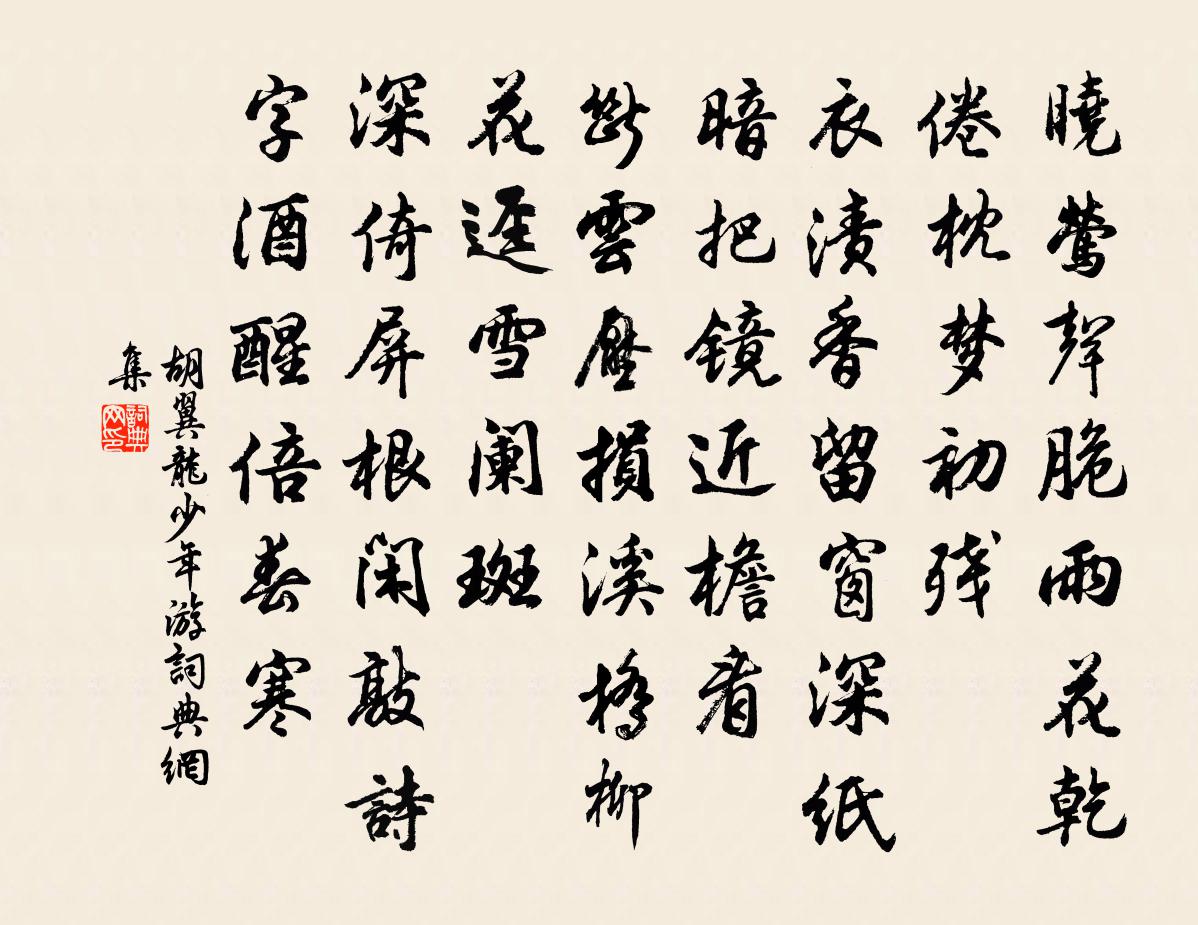 曉鶯聲脆雨花乾
倦枕梦初残
衣漬香留窗深紙
暗把镜近檐看
斷雲壓損溪橋柳
花遲雪阑斑
深倚屏根闲敲詩
字酒醒倍春寒
胡翼龍少年游詞典網
集
詞典
网印